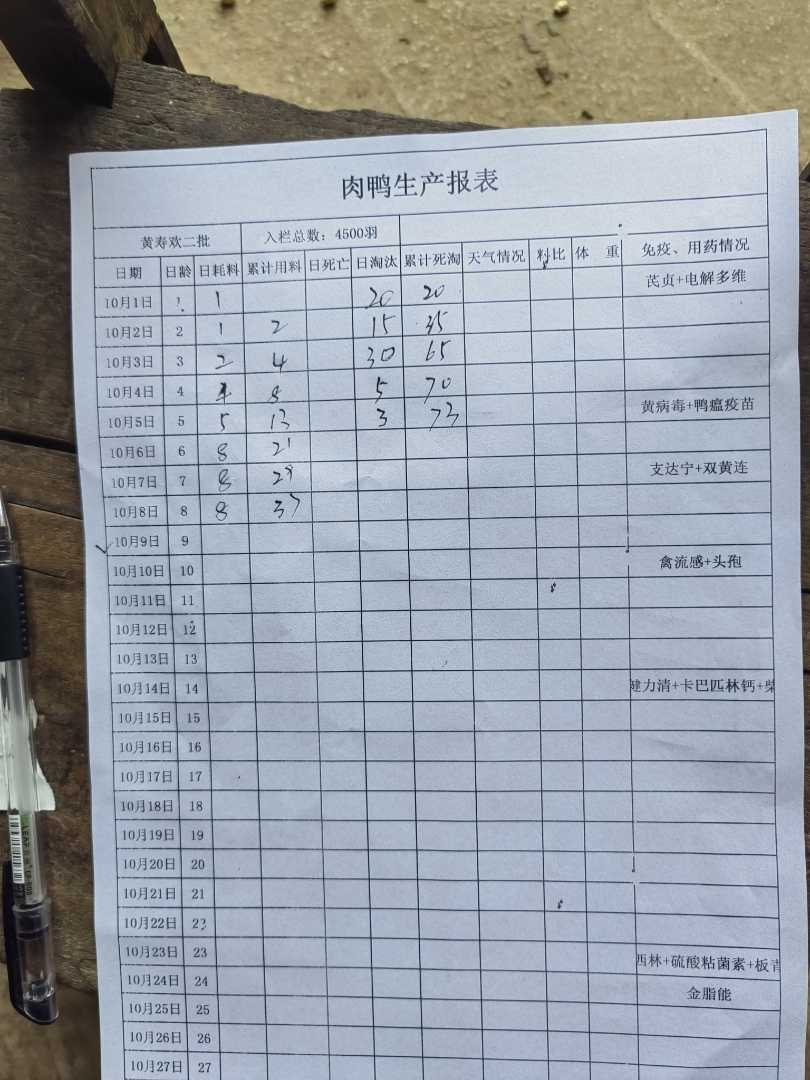 肉鸭生产报表
黄寿欢二批 入栏总数：4500羽
日期 日龄 日耗料 累计用料 日死亡 日淘汰 累计死淘 天气情况 料比 体 重 免疫、用药情况
10月1日 1 1 20 20 芪贞+电解多维
10月2日 2 1 2 15 35
10月3日 3 2 4 30 65
10月4日 4 4 8 5 70
10月5日 5 5 13 3 73 黄病毒+鸭瘟疫苗
10月6日 6 8 21
10月7日 7 8 29 支达宁+双黄连
10月8日 8 8 37
10月9日 9
10月10日 10 禽流感+头孢
10月11日 11
10月12日 12
10月13日 13
10月14日 14 健力清+卡巴匹林钙+柴
10月15日 15
10月16日 16
10月17日 17
10月18日 18
10月19日 19
10月20日 20
10月21日 21
10月22日 22
10月23日 23 西林+硫酸粘菌素+板青
10月24日 24 金脂能
10月25日 25
10月26日 26
10月27日 27